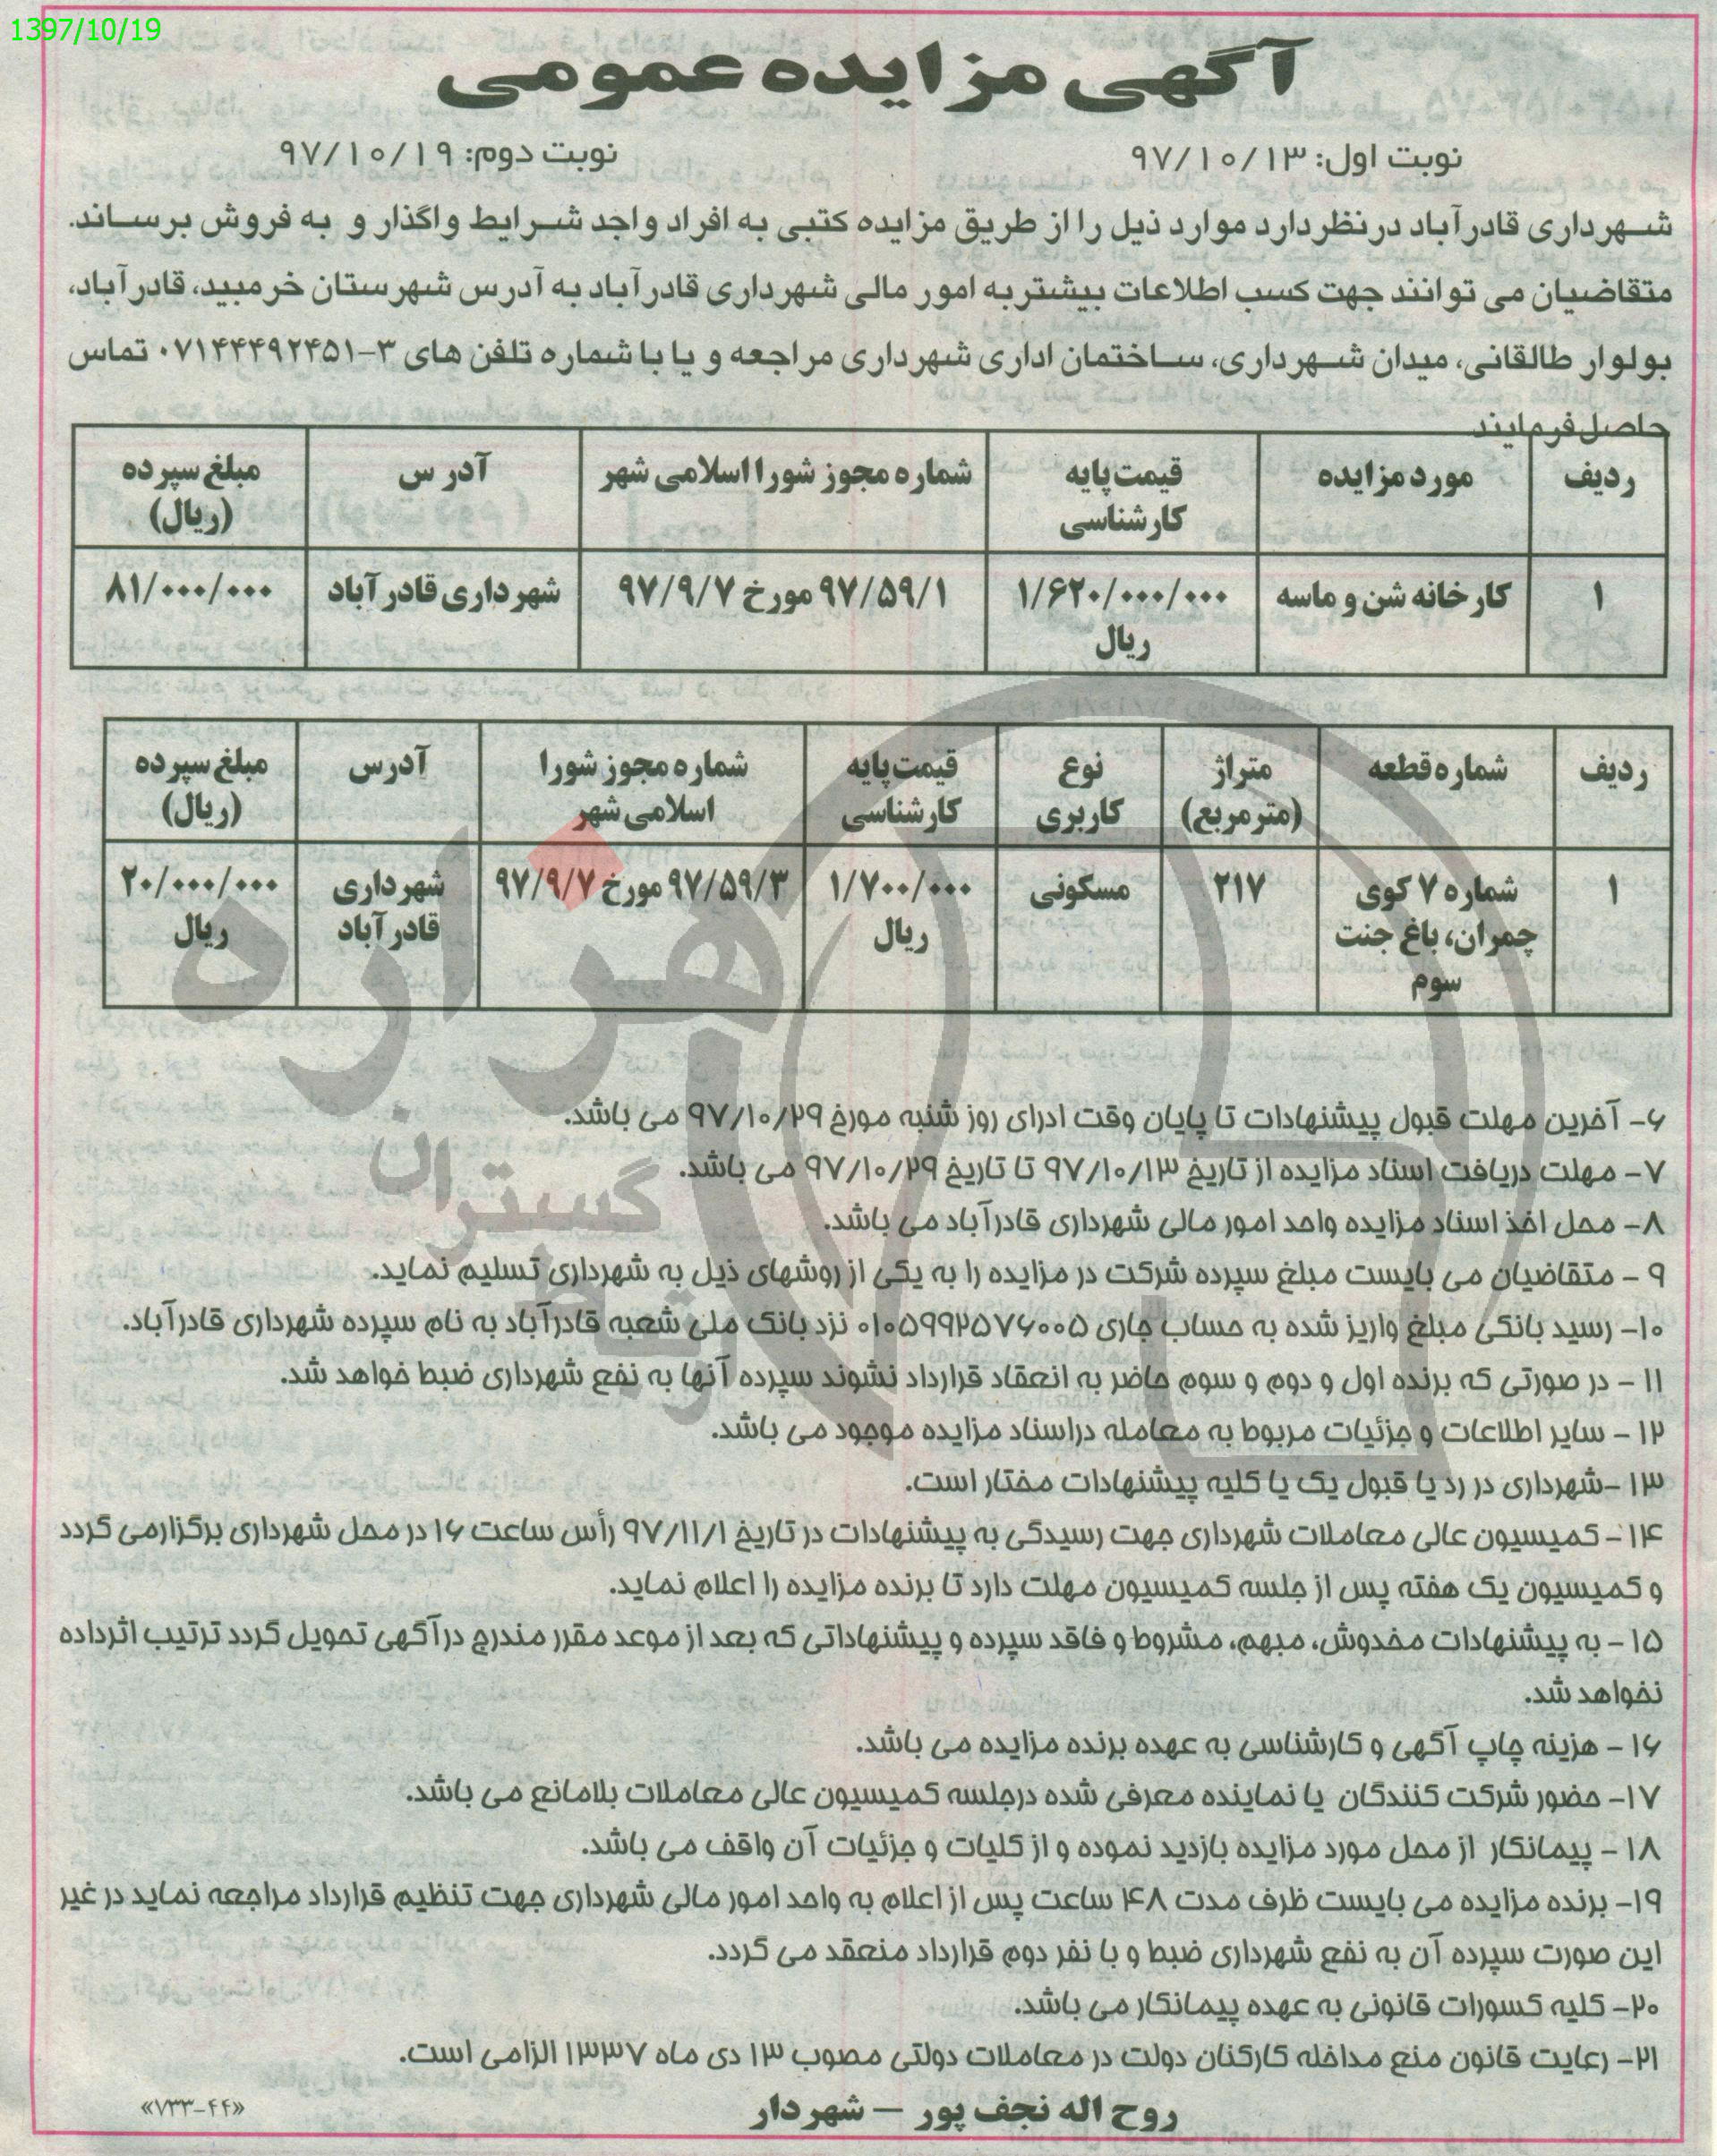 1397/10/19
آگهی مزایده عمومی
نوبت اول: ۹۷/۱۰/۱۳
نوبت دوم: ۹۷/۱۰/۱۹
شهرداری قادرآباد درنظر دارد موارد ذیل را از طریق مزایده کتبی به افراد واجد شرایط واگذار و به فروش برساند.
متقاضیان می توانند جهت کسب اطلاعات بیشتر به امور مالی شهرداری قادرآباد به آدرس شهرستان خرمبید، قادرآباد،
بولوار طالقانی، میدان شهرداری، ساختمان اداری شهرداری مراجعه و یا با شماره تلفن های ۳-۰۷۱۴۴۴۹۲۴۵۱ تماس
حاصل فرمایند
ردیف | مورد مزایده | قیمت پایه کارشناسی | شماره مجوز شورا اسلامی شهر | آدرس | مبلغ سپرده (ریال)
۱ | کارخانه شن و ماسه | ۱/۶۲۰/۰۰۰/۰۰۰ ریال | ۹۷/۵۹/۱ مورخ ۹۷/۹/۷ | شهرداری قادرآباد | ۸۱/۰۰۰/۰۰۰
ردیف | شماره قطعه | متراژ (مترمربع) | نوع کاربری | قیمت پایه کارشناسی | شماره مجوز شورا اسلامی شهر | آدرس | مبلغ سپرده (ریال)
۱ | شماره ۷ کوی چمران، باغ جنت سوم | ۲۱۷ | مسکونی | ۱/۷۰۰/۰۰۰ ریال | ۹۷/۵۹/۳ مورخ ۹۷/۹/۷ | شهرداری قادرآباد | ۲۰/۰۰۰/۰۰۰ ریال
هزاره
گستران
۶- آخرین مهلت قبول پیشنهادات تا پایان وقت ادرای روز شنبه مورخ ۹۷/۱۰/۲۹ می باشد.
۷- مهلت دریافت اسناد مزایده از تاریخ ۹۷/۱۰/۱۳ تا تاریخ ۹۷/۱۰/۲۹ می باشد.
۸- محل اخذ اسناد مزایده واحد امور مالی شهرداری قادرآباد می باشد.
۹ - متقاضیان می بایست مبلغ سپرده شرکت در مزایده را به یکی از روشهای ذیل به شهرداری تسلیم نماید.
۱۰- رسید بانکی مبلغ واریز شده به حساب جاری ۰۱۰۵۹۹۲۵۷۶۰۰۵ نزد بانک ملی شعبه قادرآباد به نام سپرده شهرداری قادرآباد.
۱۱ - در صورتی که برنده اول و دوم و سوم حاضر به انعقاد قرارداد نشوند سپرده آنها به نفع شهرداری ضبط خواهد شد.
۱۲ - سایر اطلاعات و جزئیات مربوط به معامله دراسناد مزایده موجود می باشد.
۱۳ -شهرداری در رد یا قبول یک یا کلیه پیشنهادات مختار است.
۱۴- کمیسیون عالی معاملات شهرداری جهت رسیدگی به پیشنهادات در تاریخ ۹۷/۱۱/۱ رأس ساعت ۱۶ در محل شهرداری برگزارمی گردد
و کمیسیون یک هفته پس از جلسه کمیسیون مهلت دارد تا برنده مزایده را اعلام نماید.
۱۵ - به پیشنهادات مخدوش، مبهم، مشروط و فاقد سپرده و پیشنهاداتی که بعد از موعد مقرر مندرج درآگهی تحویل گردد ترتیب اثرداده
نخواهد شد.
۱۶ - هزینه چاپ آگهی و کارشناسی به عهده برنده مزایده می باشد.
۱۷- حضور شرکت کنندگان یا نماینده معرفی شده درجلسه کمیسیون عالی معاملات بلامانع می باشد.
۱۸ - پیمانکار از محل مورد مزایده بازدید نموده و از کلیات و جزئیات آن واقف می باشد.
۱۹- برنده مزایده می بایست ظرف مدت ۴۸ ساعت پس از اعلام به واحد امور مالی شهرداری جهت تنظیم قرارداد مراجعه نماید در غیر
این صورت سپرده آن به نفع شهرداری ضبط و با نفر دوم قرارداد منعقد می گردد.
۲۰- کلیه کسورات قانونی به عهده پیمانکار می باشد.
۲۱- رعایت قانون منع مداخله کارکنان دولت در معاملات دولتی مصوب ۱۳ دی ماه ۱۳۳۷ الزامی است.
روح اله نجف پور - شهردار
«۷۳۳-۴۴»